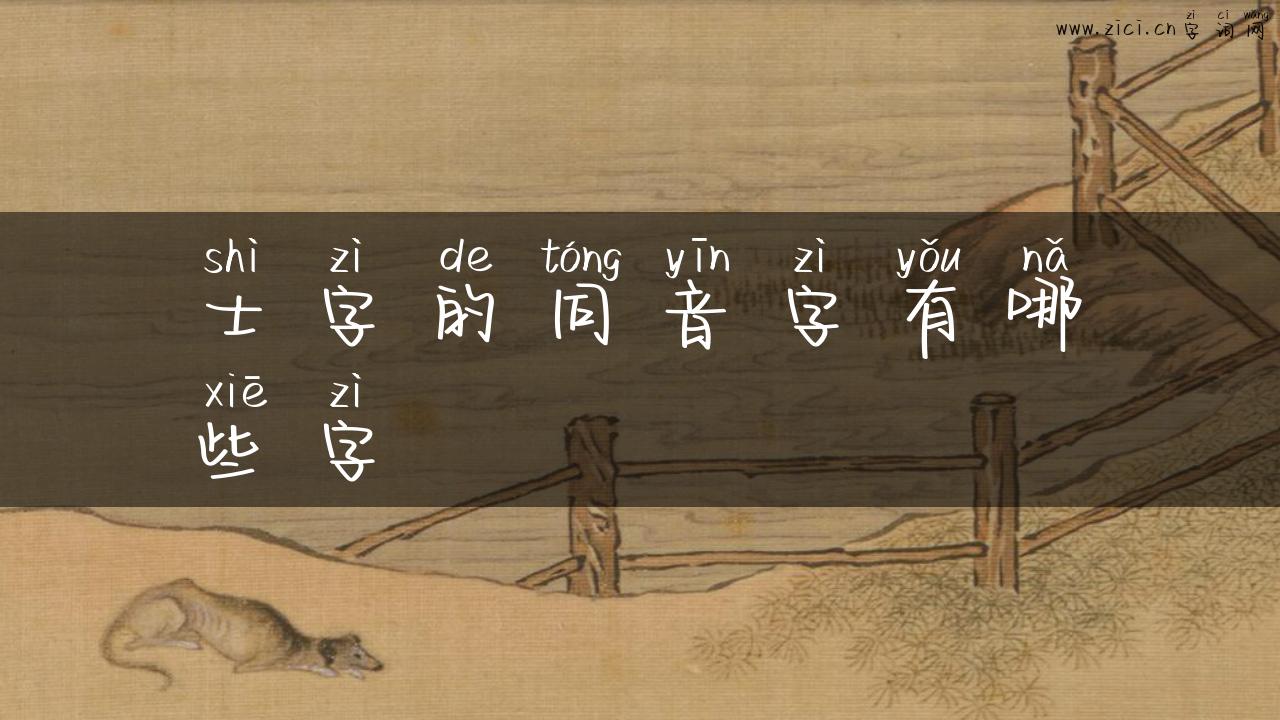 zì cí wǎng
www.zici.cn 字词网
shì zì de tóng yīn zì yǒu nǎ
士字的同音字有哪
xiē zì
些字